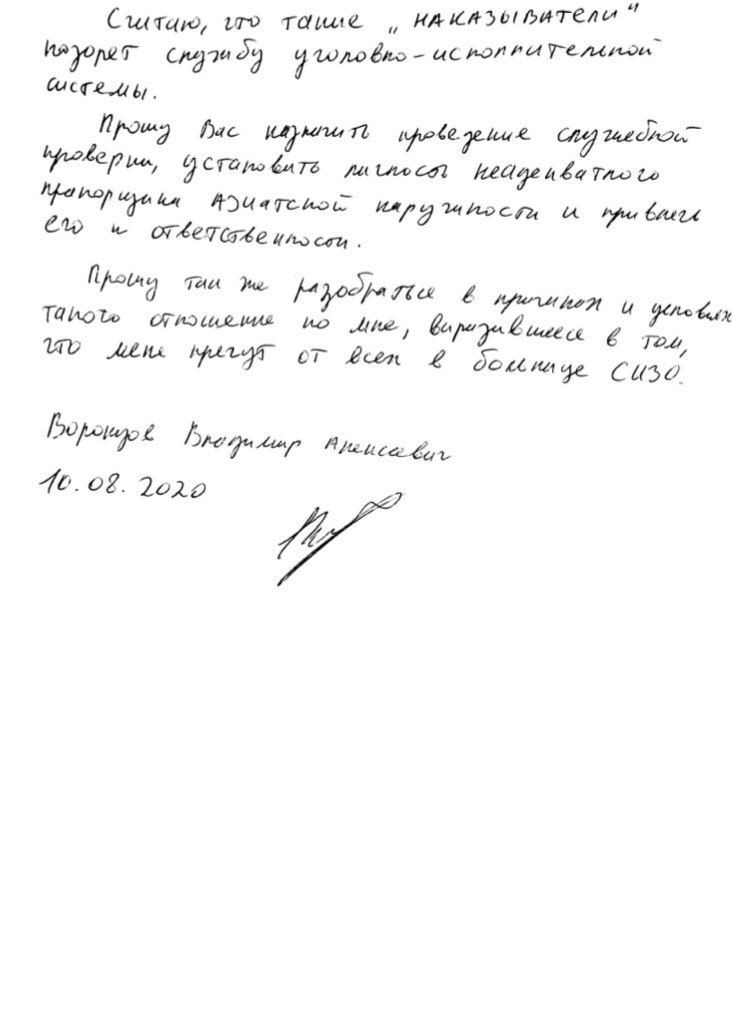 Считаю, что такие „НАКАЗЫВАТЕЛИ“
позорет службу уголовно-исполнительной
системы.
Прошу Вас назначить проведение служебной
проверки, установить личность неадекватного
прапорщика АЗИАТСКОЙ наружности и привлечь
его к ответственности.
Прошу так же разобраться в причинах и условиях
такого отношение ко мне, выразившиеся в том,
что меня прячут от всех в больнице СИЗО.
Воронцов Владимир Алексеевич
10.08.2020